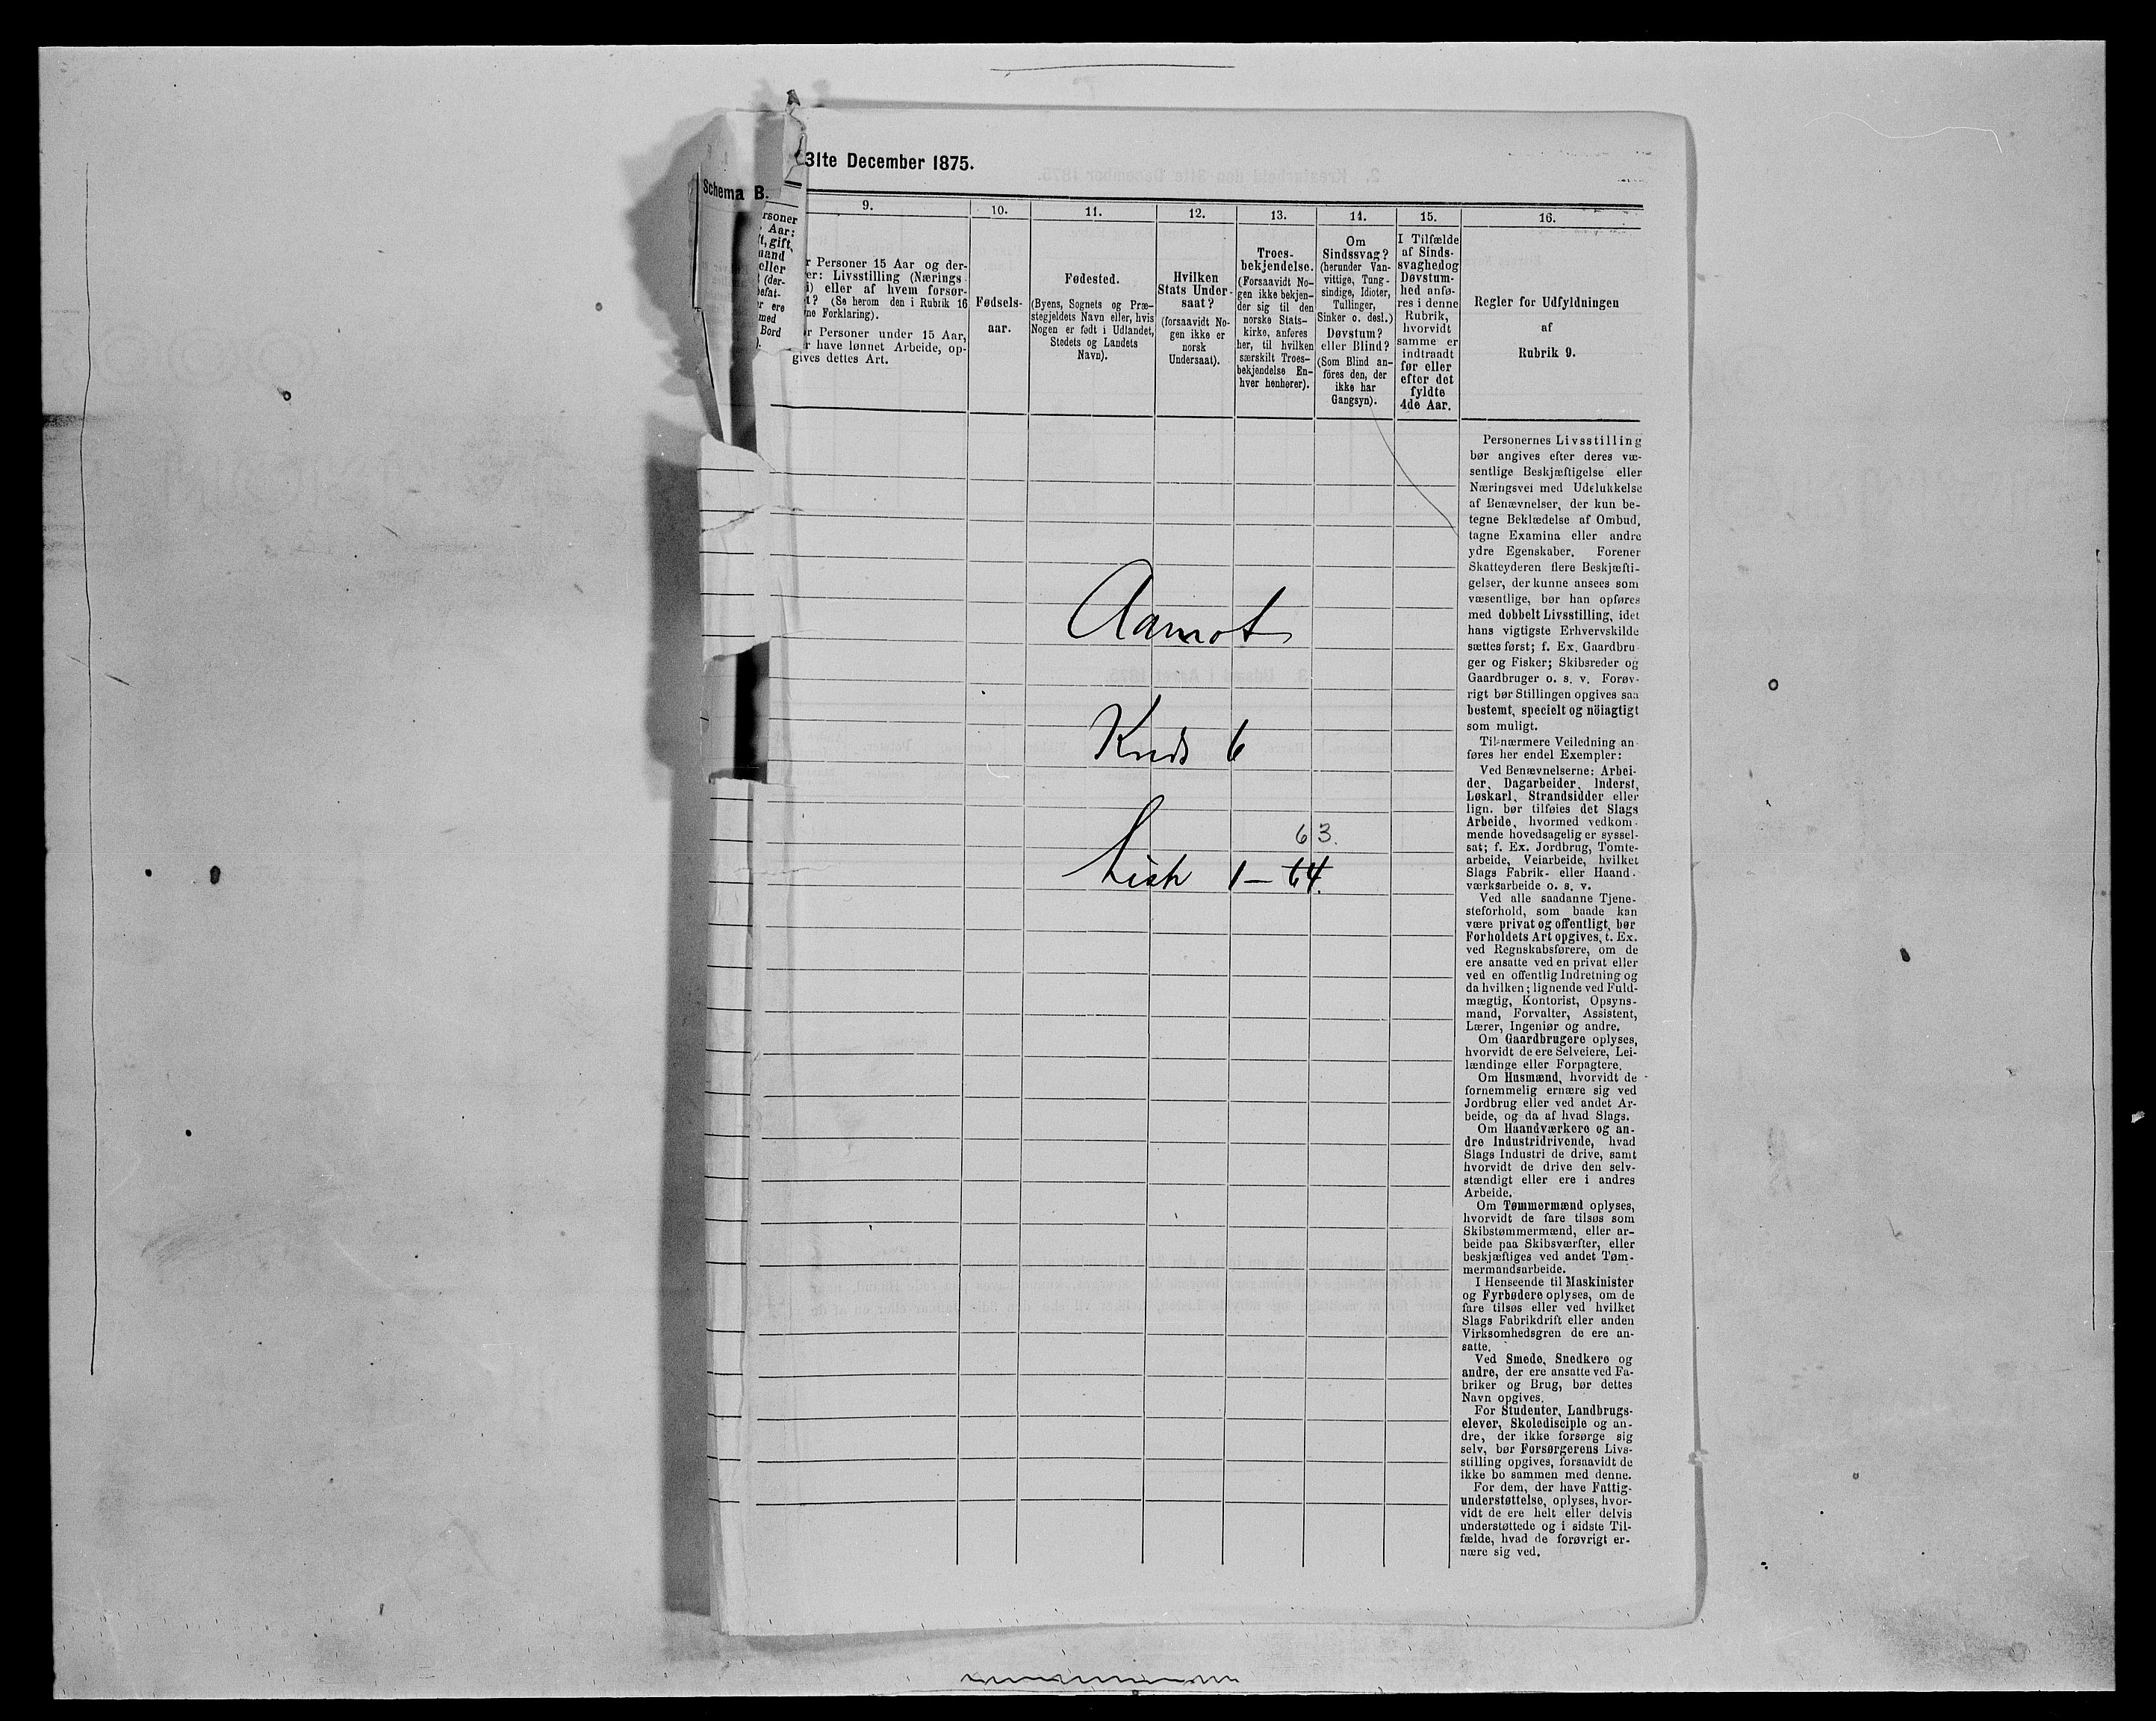 31te December 1875.
Schema B.
rsoner
Aar:
ft, gift,
mand
eller
(der-
befat-
r ere
med
Bord
).
9.
r Personer 15 Aar og der-
er: Livsstilling (Nærings-
i) eller af hvem forsør-
t? (Se herom den i Rubrik 16
ne Forklaring).
r Personer under 15 Aar,
r have lønnet Arbeide, op-
gives dettes Art.
10.
Fødsels-
aar.
11.
Fødested.
(Byens, Sognets og Præ-
stegjeldets Navn eller, hvis
Nogen er født i Udlandet,
Stedets og Landets
Navn).
12.
Hvilken
Stats Under-
saat?
(forsaavidt No-
gen ikke er
norsk
Undersaat).
13.
Troes-
bekjendelse.
(Forsaavidt No-
gen ikke bekjen-
der sig til den
norske Stats-
kirke, anføres
her, til hvilken
særskilt Troes-
bekjendelse En-
hver henhører).
14.
Om
Sindssvag?
(herunder Van-
vittige, Tung-
sindige, Idioter,
Tullinger,
Sinker o. desl.)
Døvstum?
eller Blind?
(Som Blind an-
føres den, der
ikke har
Gangsyn).
15.
I Tilfælde
af Sinds-
svaghed og
Døvstum-
hed anfø-
res i denne
Rubrik,
hvorvidt
samme er
indtraadt
før eller
efter det
fyldte
4de Aar.
16.
Regler for Udfyldningen
af
Rubrik 9.
Personernes Livsstilling
bør angives efter deres væ-
sentlige Beskjæftigelse eller
Næringsvei med Udelukkelse
af Benævnelser, der kun be-
tegne Beklædelse af Ombud,
tagne Examina eller andre
ydre Egenskaber. Forener
Skatteyderen flere Beskjæfti-
gelser, der kunne ansees som
væsentlige, bør han opføres
med dobbelt Livsstilling, idet
hans vigtigste Erhvervskilde
sættes først; f. Ex. Gaardbru
ger og Fisker; Skibsreder og
Gaardbruger o. s. v. Forøv-
rigt bør Stillingen opgives saa
bestemt, specielt og nöiagtigt
som muligt.
Til nærmere Veiledning an-
føres her endel Exempler:
Ved Benævnelserne: Arbei-
der, Dagarbeider, Inderst,
Løskarl, Strandsidder eller
lign. bør tilføies det Slags
Arbeide, hvormed vedkom-
mende hovedsagelig er syssel-
sat; f. Ex. Jordbrug, Tomte-
arbeide, Veiarbeide, hvilket
Slags Fabrik- eller Haand-
værksarbeide o. s. v.
Ved alle saadanne Tjene-
steforhold, som baade kan
være privat og offentligt, bør
Forholdets Art opgives, t. Ex.
ved Regnskabsførere, om de
ere ansatte ved en privat eller
ved en offentlig Indretning og
da hvilken; lignende ved Fuld-
mægtig, Kontorist, Opsyns-
mand, Forvalter, Assistent,
Lærer, Ingeniør og andre.
Om Gaardbrugere oplyses,
hvorvidt de ere Selveiere, Lei-
lændinge eller Forpagtere.
Om Husmænd, hvorvidt de
fornemmelig ernære sig ved
Jordbrug eller ved andet Ar-
beide, og da af hvad Slags.
Om Haandværkere og an-
dre Industridrivende, hvad
Slags Industri de drive, samt
hvorvidt de drive den selv-
stændigt eller ere i andres
Arbeide.
Om Tømmermænd oplyses,
hvorvidt de fare tilsøs som
Skibstømmermænd, eller ar-
beide paa Skibsværfter, eller
beskjæftiges ved andet Tøm-
mermandsarbeide.
I Henseende til Maskinister
og Fyrbødere oplyses, om de
fare tilsøs eller ved hvilket
Slags Fabrikdrift eller anden
Virksomhedsgren de ere an-
satte.
Ved Smede, Snedkere og
andre, der ere ansatte ved Fa-
briker og Brug, bør dettes
Navn opgives.
For Studenter, Landbrugs-
elever, Skoledisciple og an-
dre, der ikke forsørge sig
selv, bør Forsørgerens Livs-
stilling opgives, forsaavidt de
ikke bo sammen med denne.
For dem, der have Fattig-
understøttelse, oplyses, hvor-
vidt de ere helt eller delvis
understøttede og i sidste Til-
fælde, hvad de forøvrigt er-
nære sig ved.
Aamot
Kreds 6
63.
Liste 1-64.